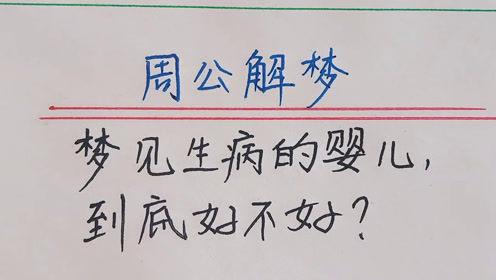 周公解梦
梦见生病的婴儿，
到底好不好？